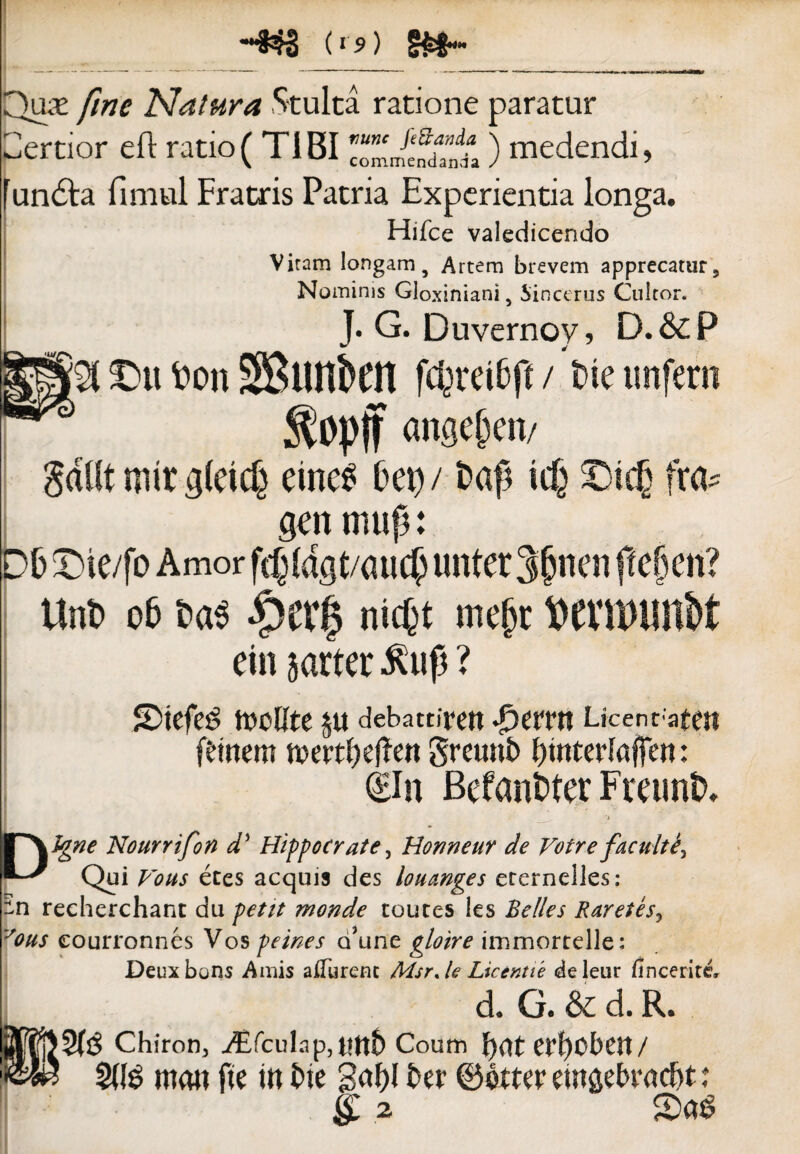 (19)
Quæ ſine Natura Stultâ ratione paratur
Certior eſt ratio ( TIBI nunc ſectanda commendanda ) medendi,
Juncta ſimul Fratris Patria Experientia longa.
Hiſce valedicendo
Vitam longam, Artem brevem apprecatur,
Nominis Gloxiniani, Sincerus Cultor.
J. G. Duvernoy, D. & P
DA Du von Wunden ſchreibſt / die unſern
Kopff angehen/
Fällt mir gleich eines bey / daß ich Dich fra-
gen muß:
Ob Die/ſo Amor ſchlägt/auch unter Ihnen ſtehen?
Und ob das Hertz nicht mehr verwundt
ein zarter Kuß ?
Dieſes wollte zu debattiren Herrn Licentiaten
ſeinem wertheſten Freund hinterlaſſen:
EIn Bekandter Freund.
DIgne Nourriſon d' Hippocrate, Honneur de Votre faculté,
Qui Vous étes acquis des louanges eternelles:
En recherchant du petit monde toutes les Belles Raretés,
Vous courronnés Vos peines d'une gloire immortelle:
Deux bons Amis aſſurent Msr. le Licentié de leur ſincerité.
d. G. & d. R.
Als Chiron, Æſculap, und Coum hat erhoben /
Als man ſie in die Zahl der Götter eingebracht:
2
Das